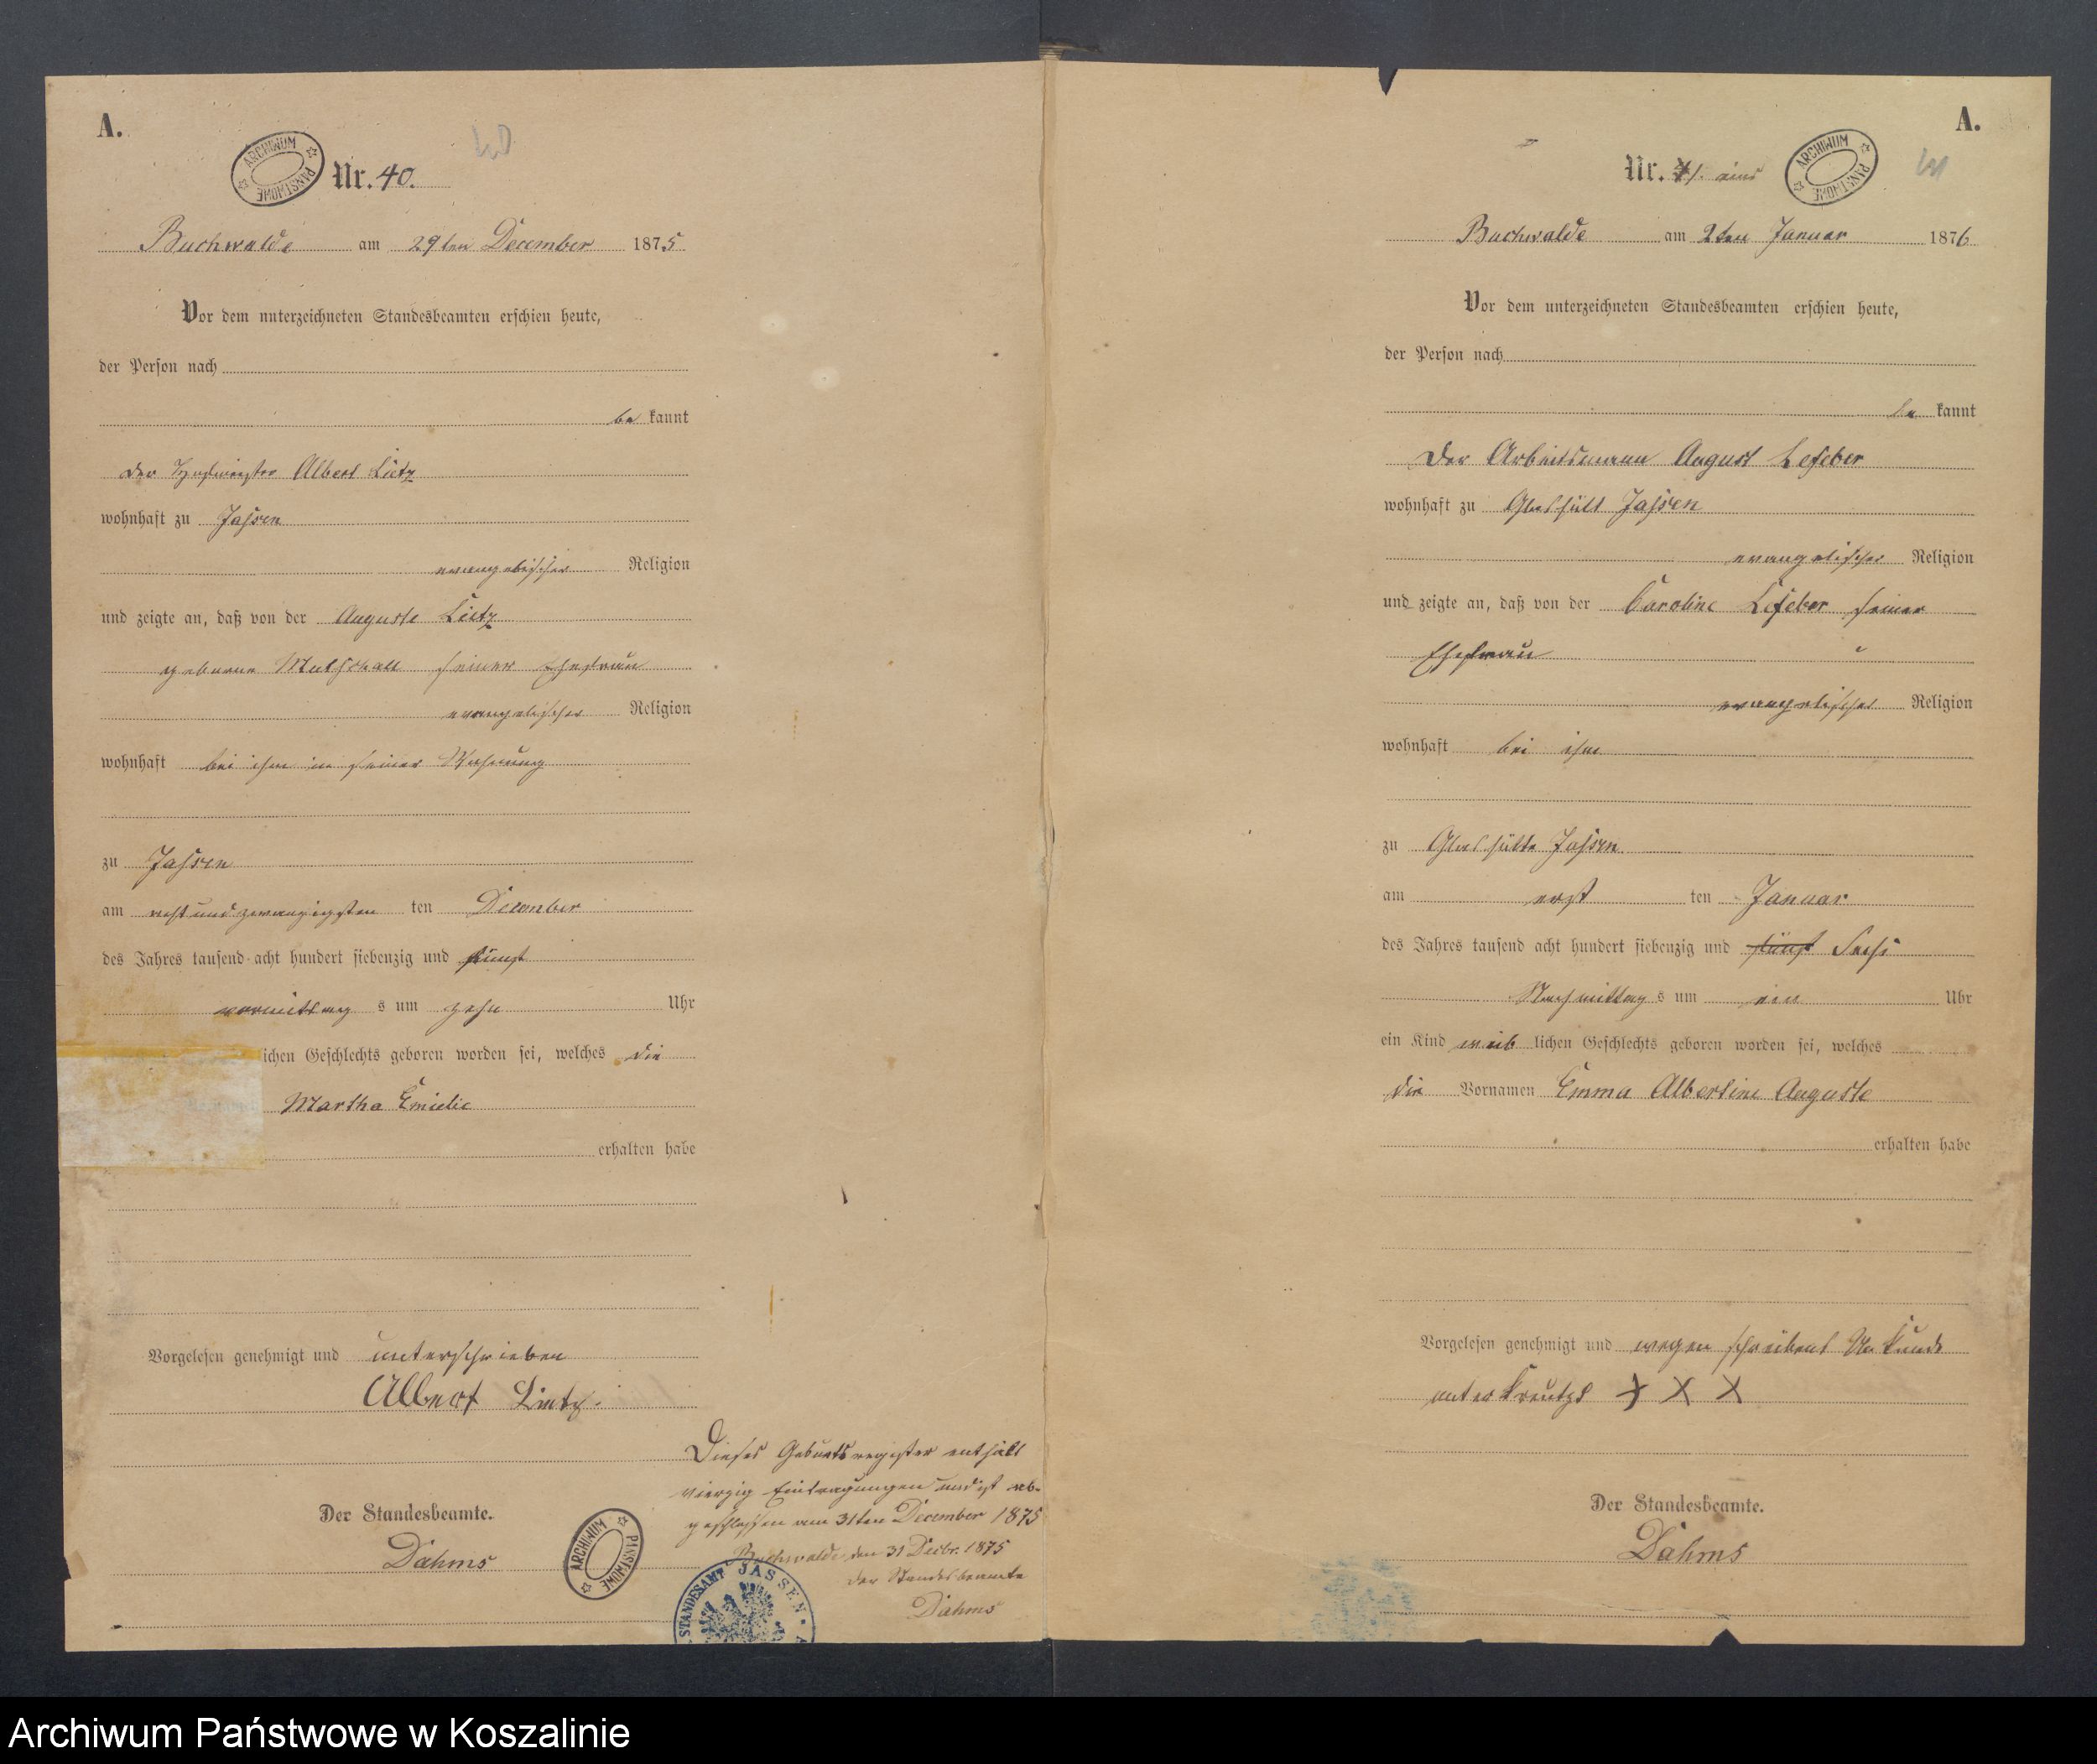 A.
ARCHIWUM PAŃSTWOWE
40
Nr. 40.
Buchwalde am 29ten December 1875
Vor dem unterzeichneten Standesbeamten erschien heute,
der Person nach
be kannt
der Albert Lietz
wohnhaft zu Jassen
evangelischer Religion
und zeigte an, daß von der Auguste Lietz
geborne seiner Ehefrau
evangelischer Religion
wohnhaft bei ihm in seiner Wohnung
zu Jassen
am acht und zwanzigsten ten December
des Jahres tausend acht hundert siebenzig und fünf
vormittag s um zehn Uhr
lichen Geschlechts geboren worden sei, welches die
Martha Emielie
erhalten habe
Vorgelesen genehmigt und unterschrieben
Albert Lietz.
Der Standesbeamte.
Dahms
ARCHIWUM PAŃSTWOWE
Dieses Geburtsregister enthält
vierzig Eintragungen und ist ab-
geschlossen am 31ten December 1875
Buchwalde, den 31 Decbr. 1875
Der Standesbeamte
Dahms
STANDESAMT JASSEN
A.
Nr. 1. eins
ARCHIWUM PAŃSTWOWE
41
Buchwalde am 2ten Januar 1876
Vor dem unterzeichneten Standesbeamten erschien heute,
der Person nach
be kannt
Der Arbeitsmann August Lefeber
wohnhaft zu Glashütt Jassen
evangelischer Religion
und zeigte an, daß von der Caroline Lefeber seiner
Ehefrau
evangelischer Religion
wohnhaft bei ihm
zu Glashütte Jassen
am erst ten Januar
des Jahres tausend acht hundert siebenzig und fünf Sechs
Nachmittag s um ein Uhr
ein Kind weib lichen Geschlechts geboren worden sei, welches
die Vornamen Emma Albertine Auguste
erhalten habe
Vorgelesen genehmigt und wegen schreibens Un kunde
unter kreutzt + X X
Der Standesbeamte.
Dahms
Archiwum Państwowe w Koszalinie